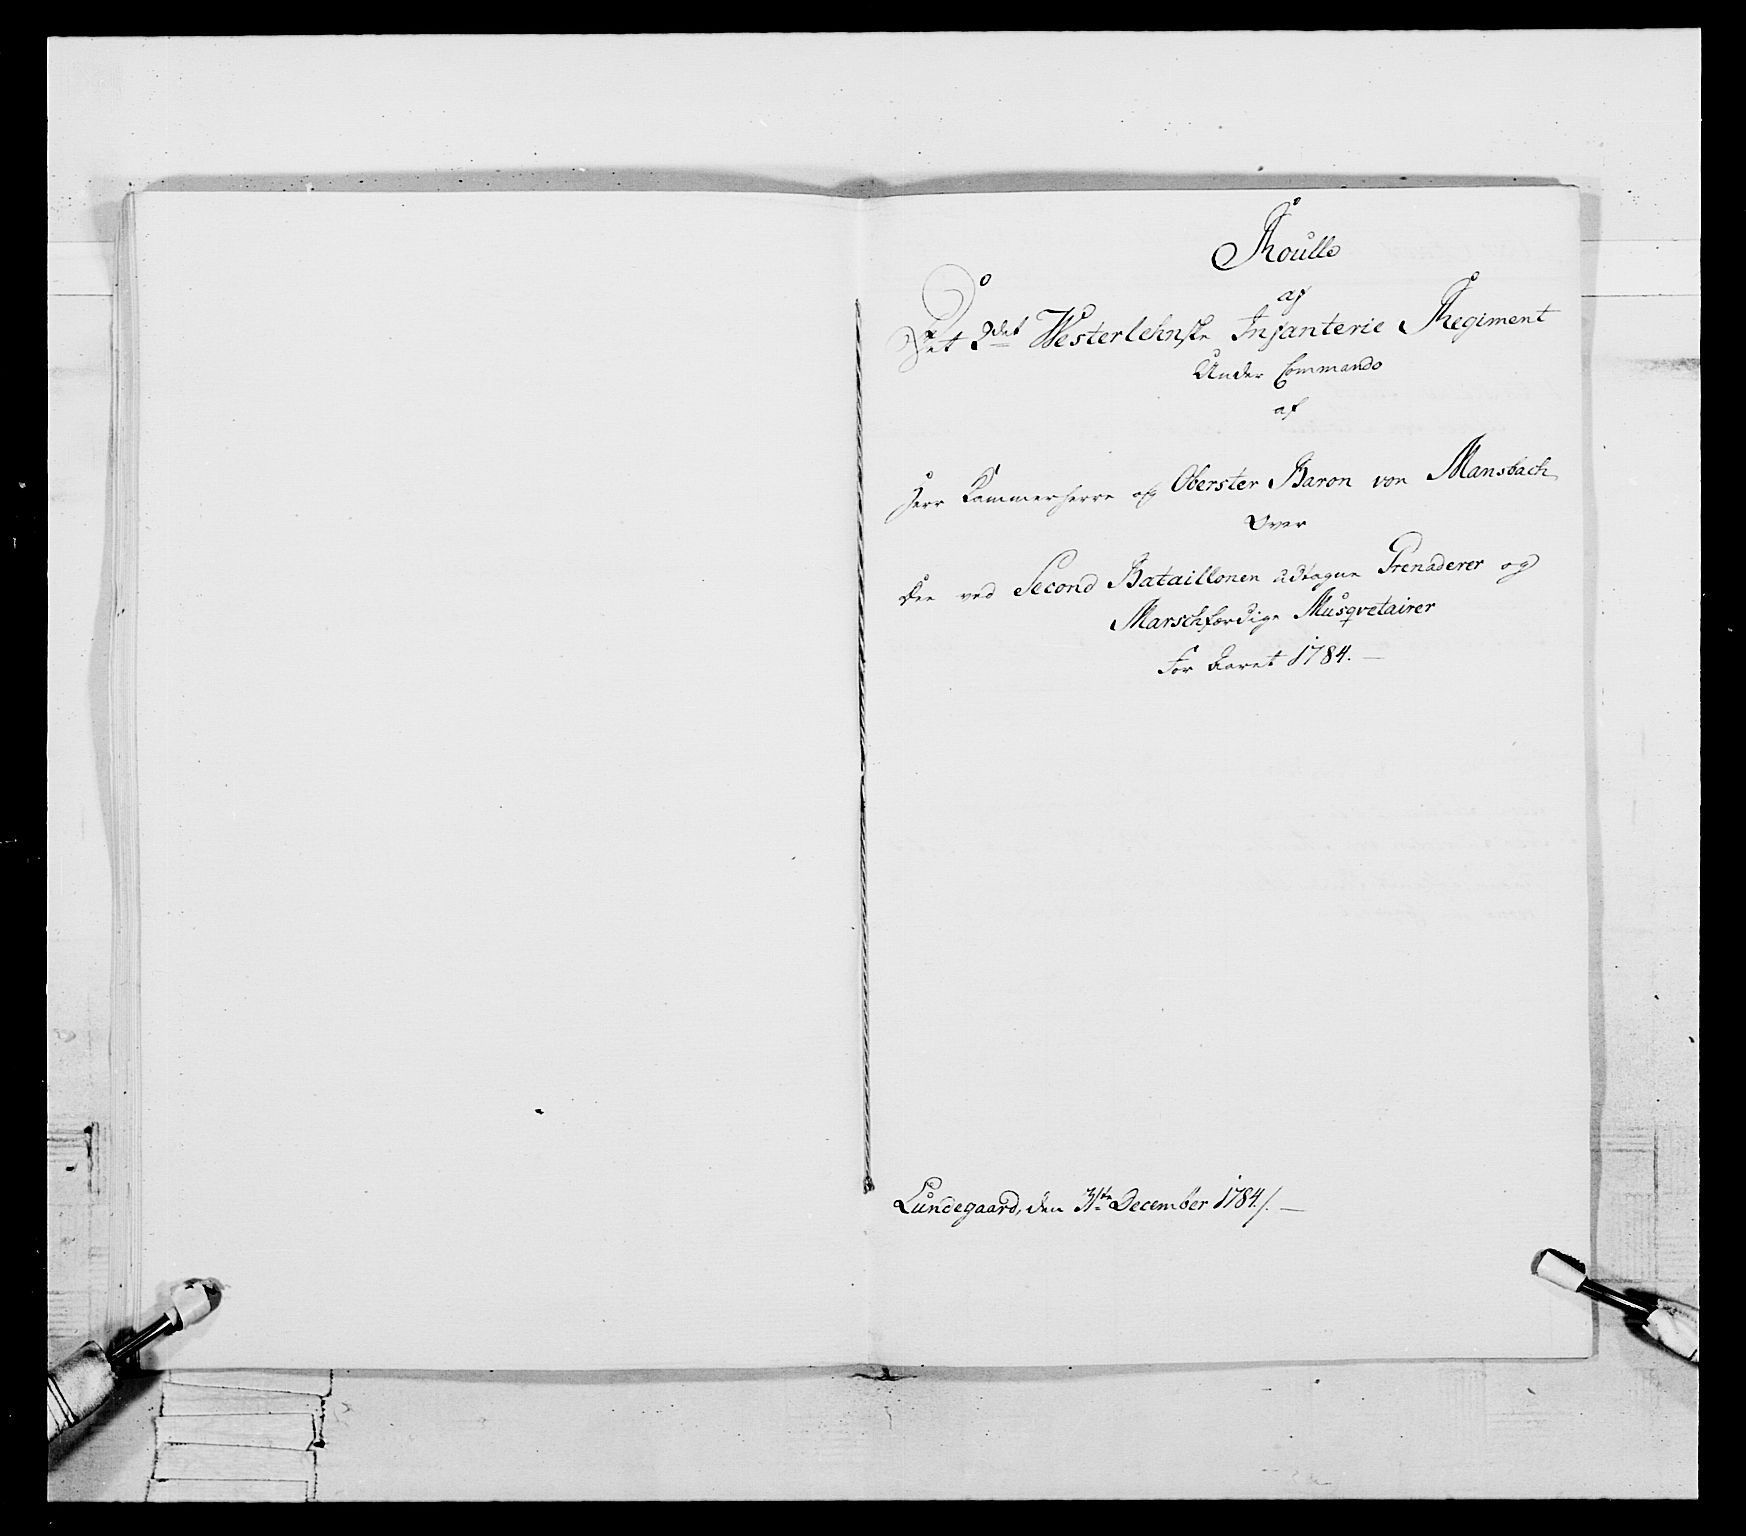 Roulle
af
Det 2det Westerlehnske Infanterie Regiment
Under Commando
af
Herr Kammerherre og Oberster Baron von Mansbach
Over
Dee ved Second Bataillonen udtagne Grenaderer og
Marschfærdige Musqvetairer
For Aaret 1784. —
Lundegaard, den 31te December 1784/. —